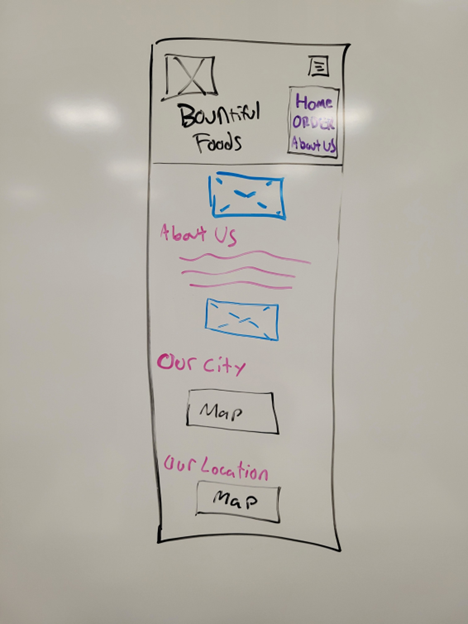 Bountiful
Foods
Home
ORDER
About US
About Us
Our City
Map
Our Location
Map